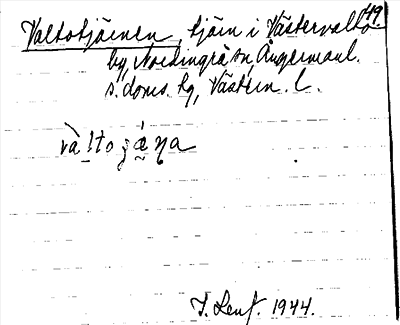 49.
Valtotjärnen, tjärn i Västervalto
by, Nordingrå sn, Ångermanl.
s. doms. hg, Västern. l.
I. Lenf. 1944.